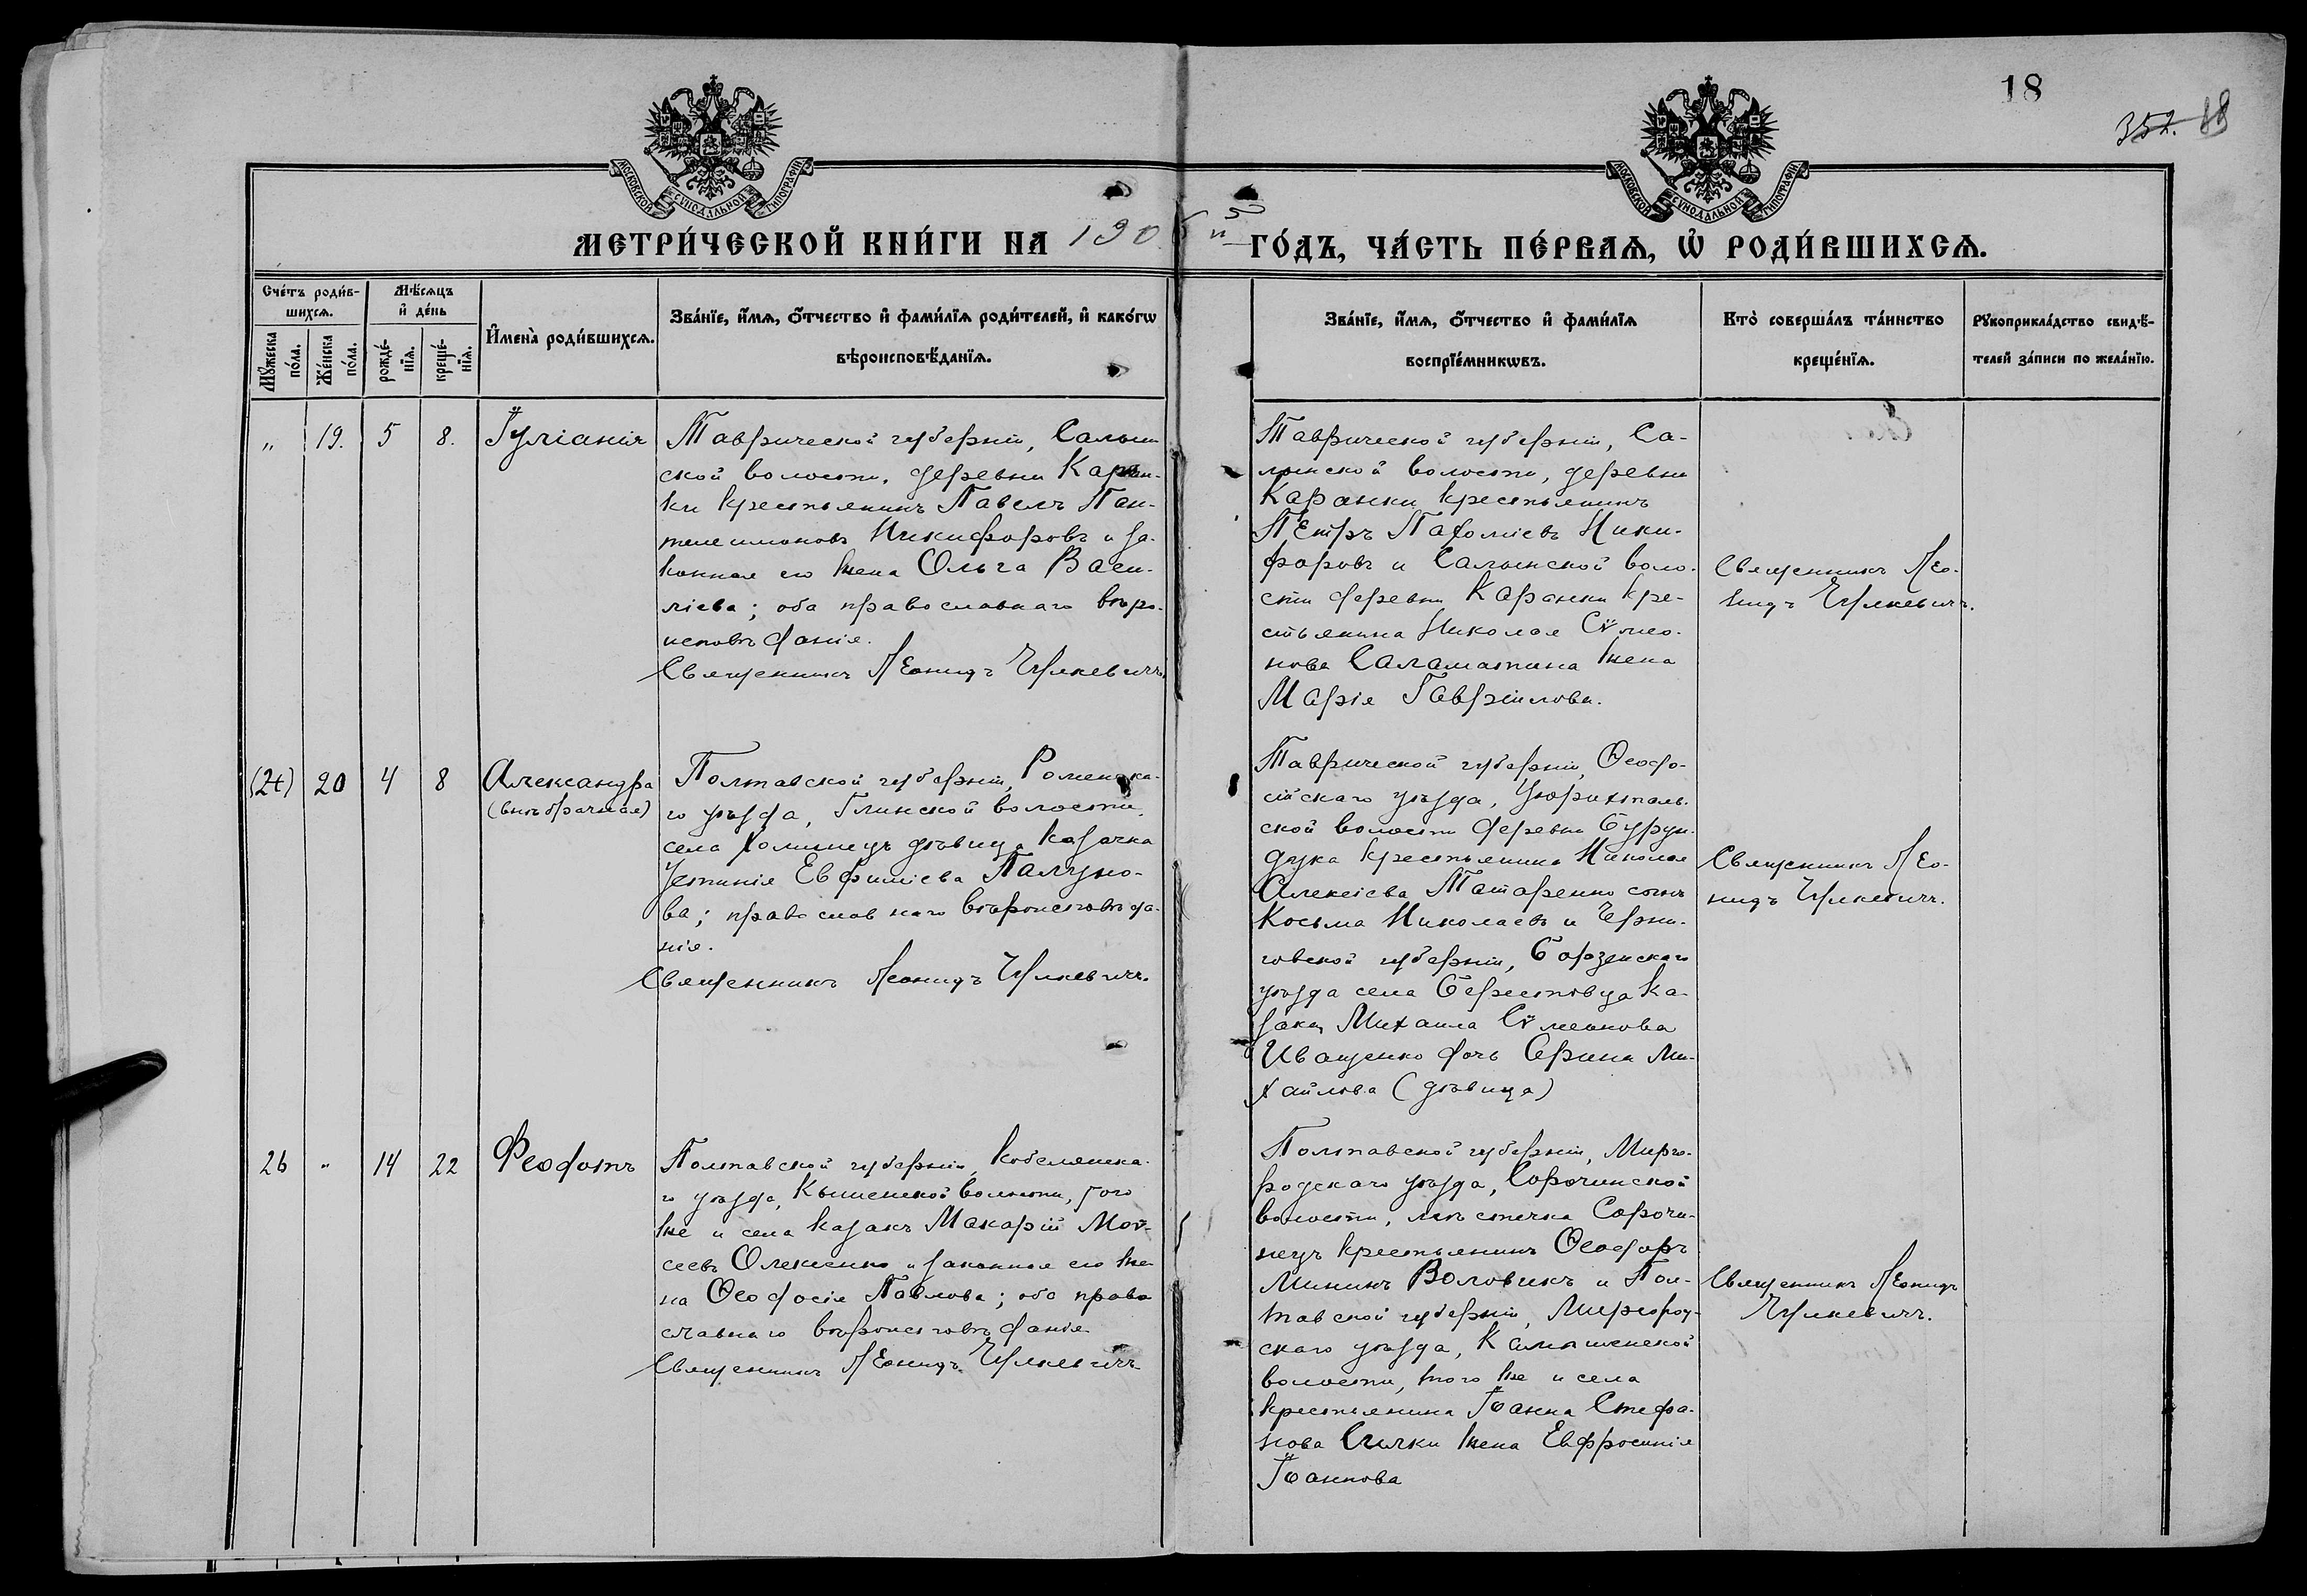 18
352. 18
МОСКОВСКОЙ СѴНОДАЛЬНОЙ ТИПОГРАФІИ
МОСКОВСКОЙ СѴНОДАЛЬНОЙ ТИПОГРАФІИ
МЕТРИ́ЧЕСКОЙ КНИ́ГИ НА 190 й ГО́ДЪ, ЧА́СТЬ ПЕ́РВАѦ, Ѽ РОДИ́ВШИХСѦ.
Сче́тъ роди́в-
шихсѧ.
Мꙋ́жеска
по́ла.
Же́нска
по́ла.
Мѣ́сѧцъ
и҆ де́нь
рожде́-
нїѧ.
креще́-
нїѧ.
И҆мена̀ роди́вшихсѧ.
Зва́нїе, и҆́мѧ, ѻ҆́тчество и҆ фами́лїѧ роди́телей, и҆ како́гѡ
вѣроисповѣ́данїѧ.
Зва́нїе, и҆́мѧ, ѻ҆́тчество и҆ фами́лїѧ
воспрїе́мникѡвъ.
Кто̀ соверша́лъ та́инство
креще́нїѧ.
Рꙋкоприкла́дство свидѣ́-
телей за́писи по жела́нїю.
„ 19. 5 8. Іуліанія
Таврической губерніи, Салын
ской волости, деревни Каран-
ки крестьянинъ Павелъ Пан-
телеимоновъ Никифоровъ и за-
конная его жена Ольга Васи-
ліева; оба православнаго вѣро-
исповѣданія.
Священникъ Леонидъ
Таврической губерніи, Са-
лынской волости, деревни
Каранки крестьянинъ
Петръ Пахоміевъ Ники-
форовъ и Салынской воло-
сти деревни Каранки кре-
стьянина Николая Сѵмео-
нова Саламатина жена
Марія Гавріилова.
Священникъ Лео-
нидъ
(24) 20 4 8 Александра
(внѣбрачная)
Полтавской губерніи, Роменска-
го уѣзда, Глинской волости,
села Хоминецъ дѣвица казачка
Устинія Евфиміева
; православнаго вѣроисповѣда-
нія.
Священникъ Леонидъ
Таврической губерніи, Ѳеодо-
сійскаго уѣзда, Цюрихталь-
ской волости деревни Бурун-
дука крестьянина Николая
Алексіева Татаренко сынъ
Косьма Николаевъ и Черни-
говской губерніи, Борзенскаго
уѣзда села Берестовца ка-
зака Михаила Сѵмеонова
Иващенко дочь Ирина Ми-
хаилова (дѣвица)
Священникъ Лео-
нидъ
26 „ 14 22 Феодотъ
Полтавской губерніи, Кобелякска-
го уѣзда, Кышенской волости, того
же и села казакъ Макарій Мой-
сеевъ Олексенко и законная его же-
на Ѳеодосія Павлова; оба право
славнаго вѣроисповѣданія.
Священникъ Леонидъ
Полтавской губерніи, Мирго-
родскаго уѣзда, Сорочинской
волости, мѣстечка Сорочи-
нецъ крестьянинъ Ѳеодоръ
Мининъ Воловикъ и Пол-
тавской губерніи, Миргород-
скаго уѣзда, Камышенской
волости, того же и села
крестьянина Іоанна Стефа-
нова жена Евфросинія
Іоаннова
Священникъ Леонидъ